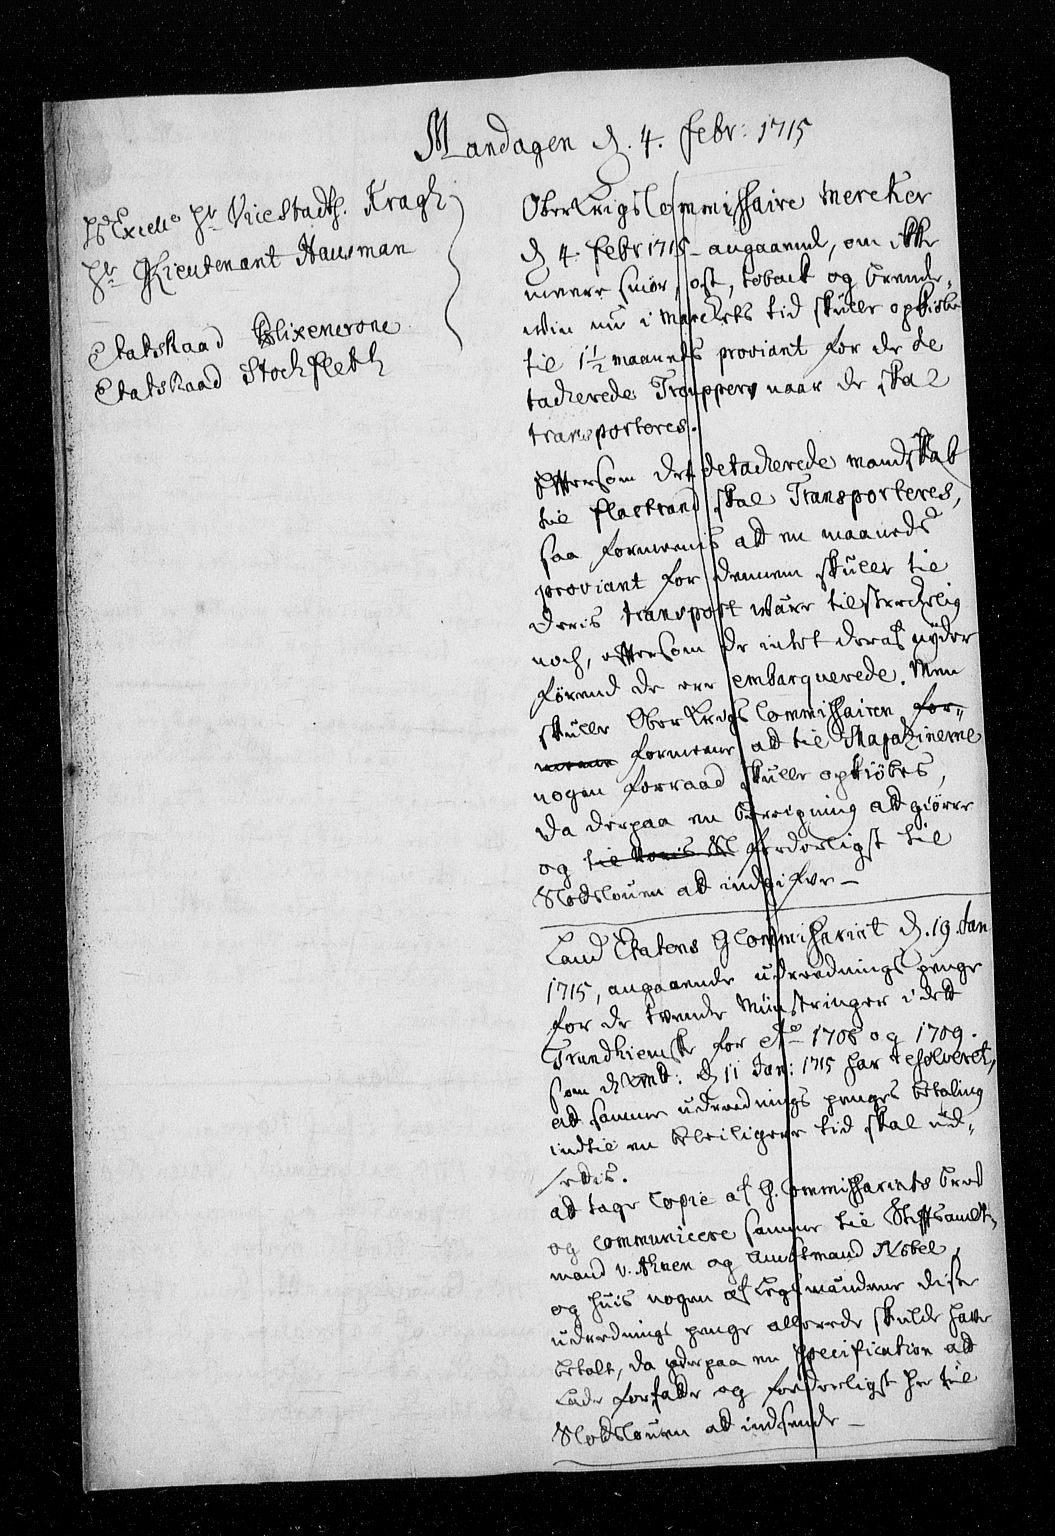 Mandagen d. 4. Febr: 1715
Hs Excell: Hr ViceStadth. Kragh
Hr GLieutenant Hausman
Etatsraad Blixencrone
Etatsraad Stockfleth
OberKrigsCommissaire Mercker
d 4 Febr 1715 angaaende, om ikke
meere smør, ost, toback og brende-
win nu i Marckets tid skulle opkiøbes
til 1½ maaneds proviant for de de
tacherede Troupper naar de skal
transporteres.
Efftersom det detacherede mandskab
til Flackrand skal Transporteres,
saa formeenis att en maaneds
proviant for dennem skulle til
deris transport være tilstreckelig
noch, efftersom de intet deraf nyder
førend de ere embarquerede. Men
skulle Ober KrigsCommissairen for-
meene formeene att til Magazinerne
nogen forraad skulle opkiøbes,
da derpaa en beregning att giørre
og til deris Sl forderligst til
Slodslouen att indgifve –
Land Etatens GCommissariat d. 19 Jan
1715, angaaende udreednings penge
for de tvende Mynstringer i dett
Trundhiemske for Ao 1708 og 1709.
som d 11 Jan: 1715 har resolveret,
att samme udreednings penges betaling
indtil en beleiligere tid skal ud-
settis.
att tage Copie af G. Commissariats bref
og communicere samme til Stiftsamt-
mand v. Ahnen og Amtmand Nobel,
og huis nogen af Legsmændene disse
udreednings penge allerede skulde have
betalt, da derpaa en specification att
lade forfatte og forderligst her til
Slodslouen att indsende –